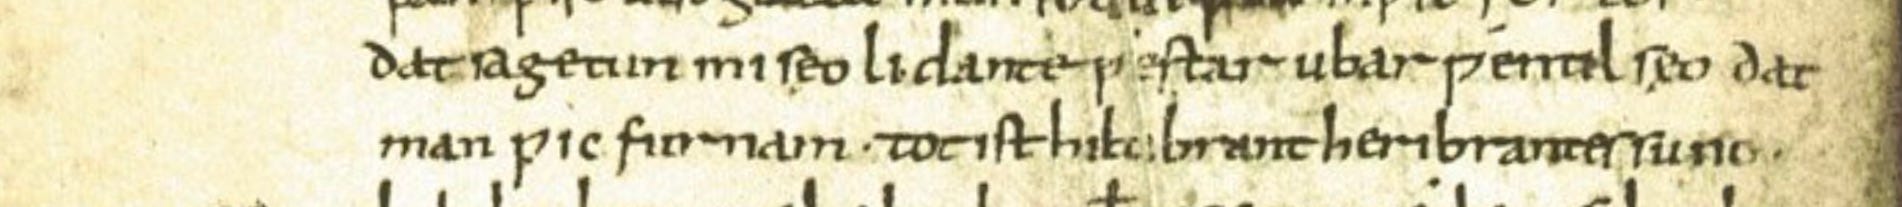 dat sagetun mi seolidante ƿestar ubar ƿentilseo dat
man ƿic furnam · tot ist hiltibrant heribrantes suno ·